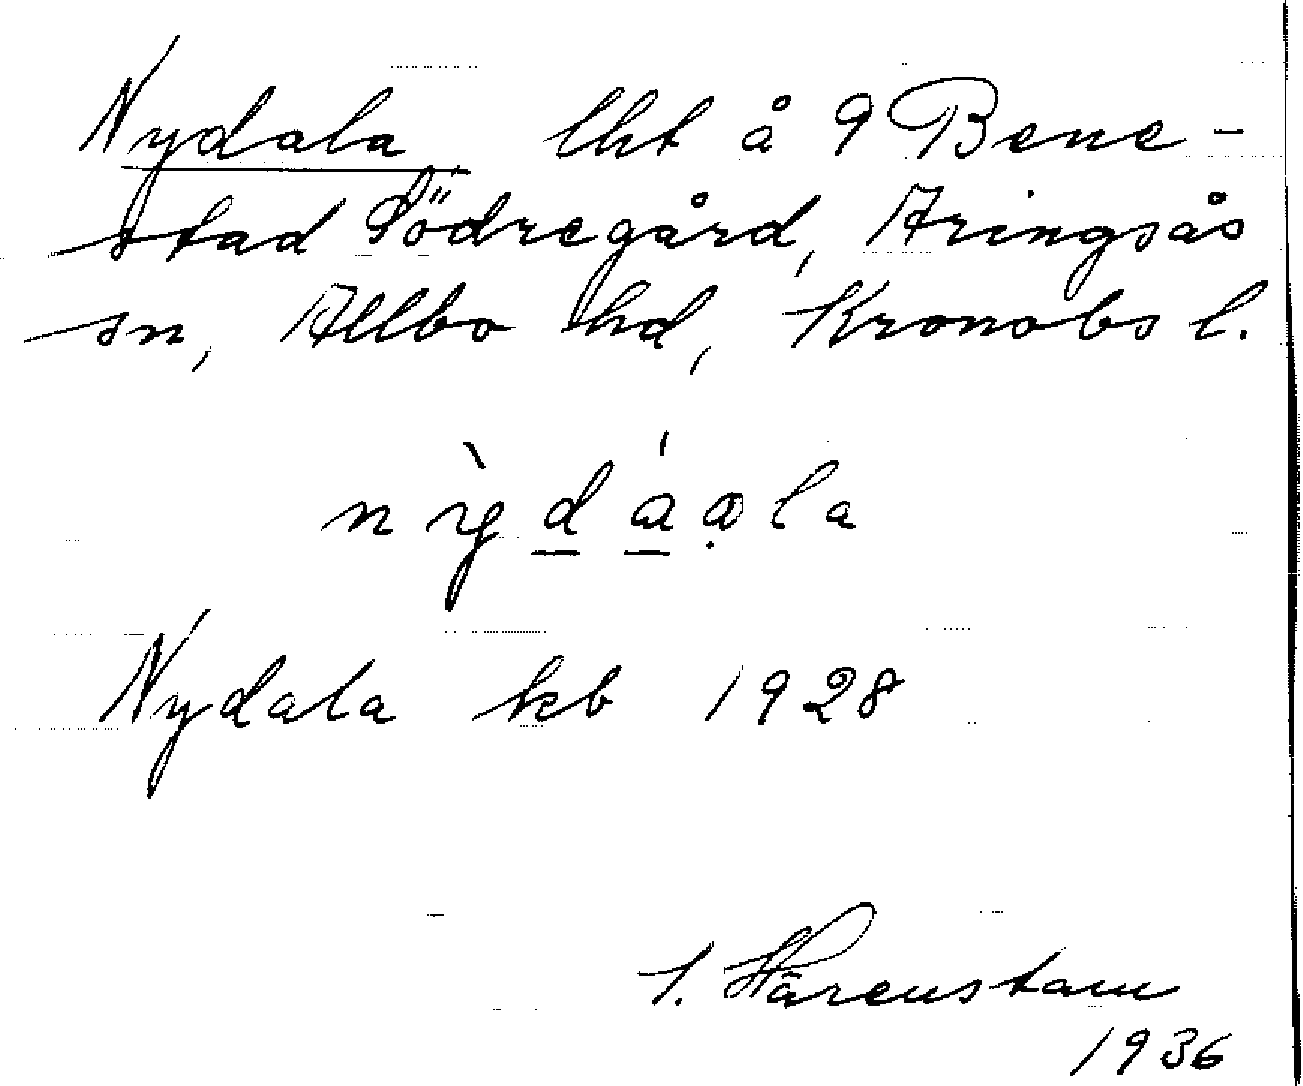 Nydala lht å 9 Bene-
stad Södregård, Aringsås
sn, Allbo hd, Kronobs l.
Nydala kb 1928
S. Härenstam
1936